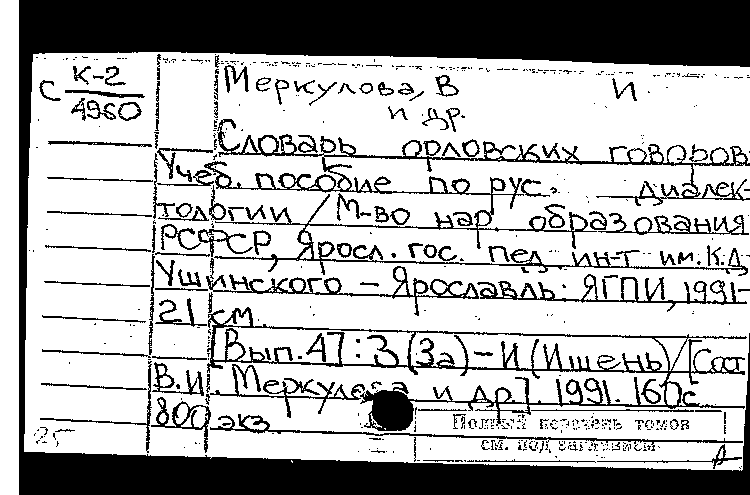 С К-2
4960
Меркулова, В И
и др.
Словарь орловских говоров
Учеб. пособие по рус. диалек-
тологии / М-во нар. образования
РСФСР, Яросл. гос. пед ин-т им. К.Д
Ушинского – Ярославль: ЯГПИ, 1991-
21 см.
[Вып. 4]: З (За) – И (Ишень) / [Сост
В.И. Меркулова и др]. 1991. 160с
800 экз
Полный перечень томов
см. под заглавием
25